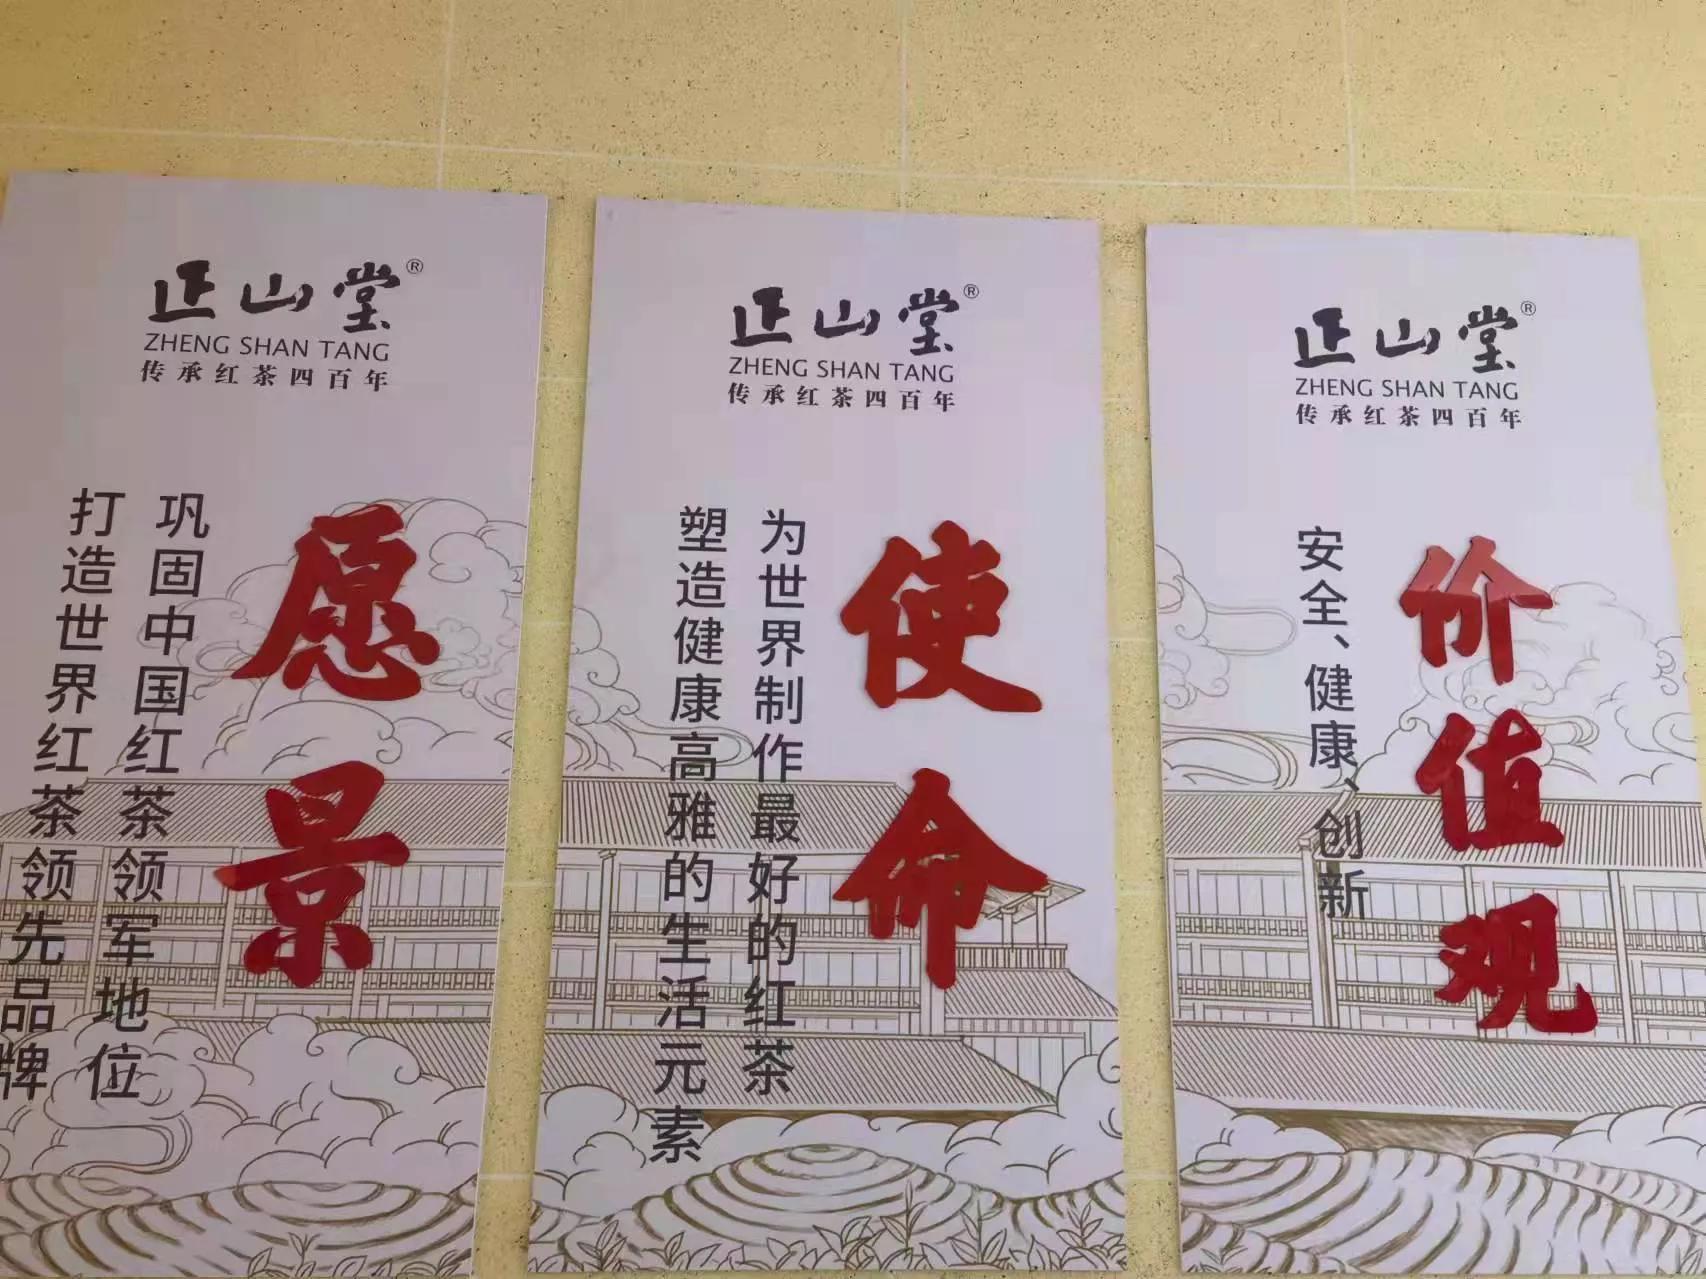 正山堂®
ZHENG SHAN TANG
传承红茶四百年
愿景
巩固中国红茶领军地位
打造世界红茶领先品牌
正山堂®
ZHENG SHAN TANG
传承红茶四百年
使命
为世界制作最好的红茶
塑造健康高雅的生活元素
正山堂®
ZHENG SHAN TANG
传承红茶四百年
价值观
安全、健康、创新